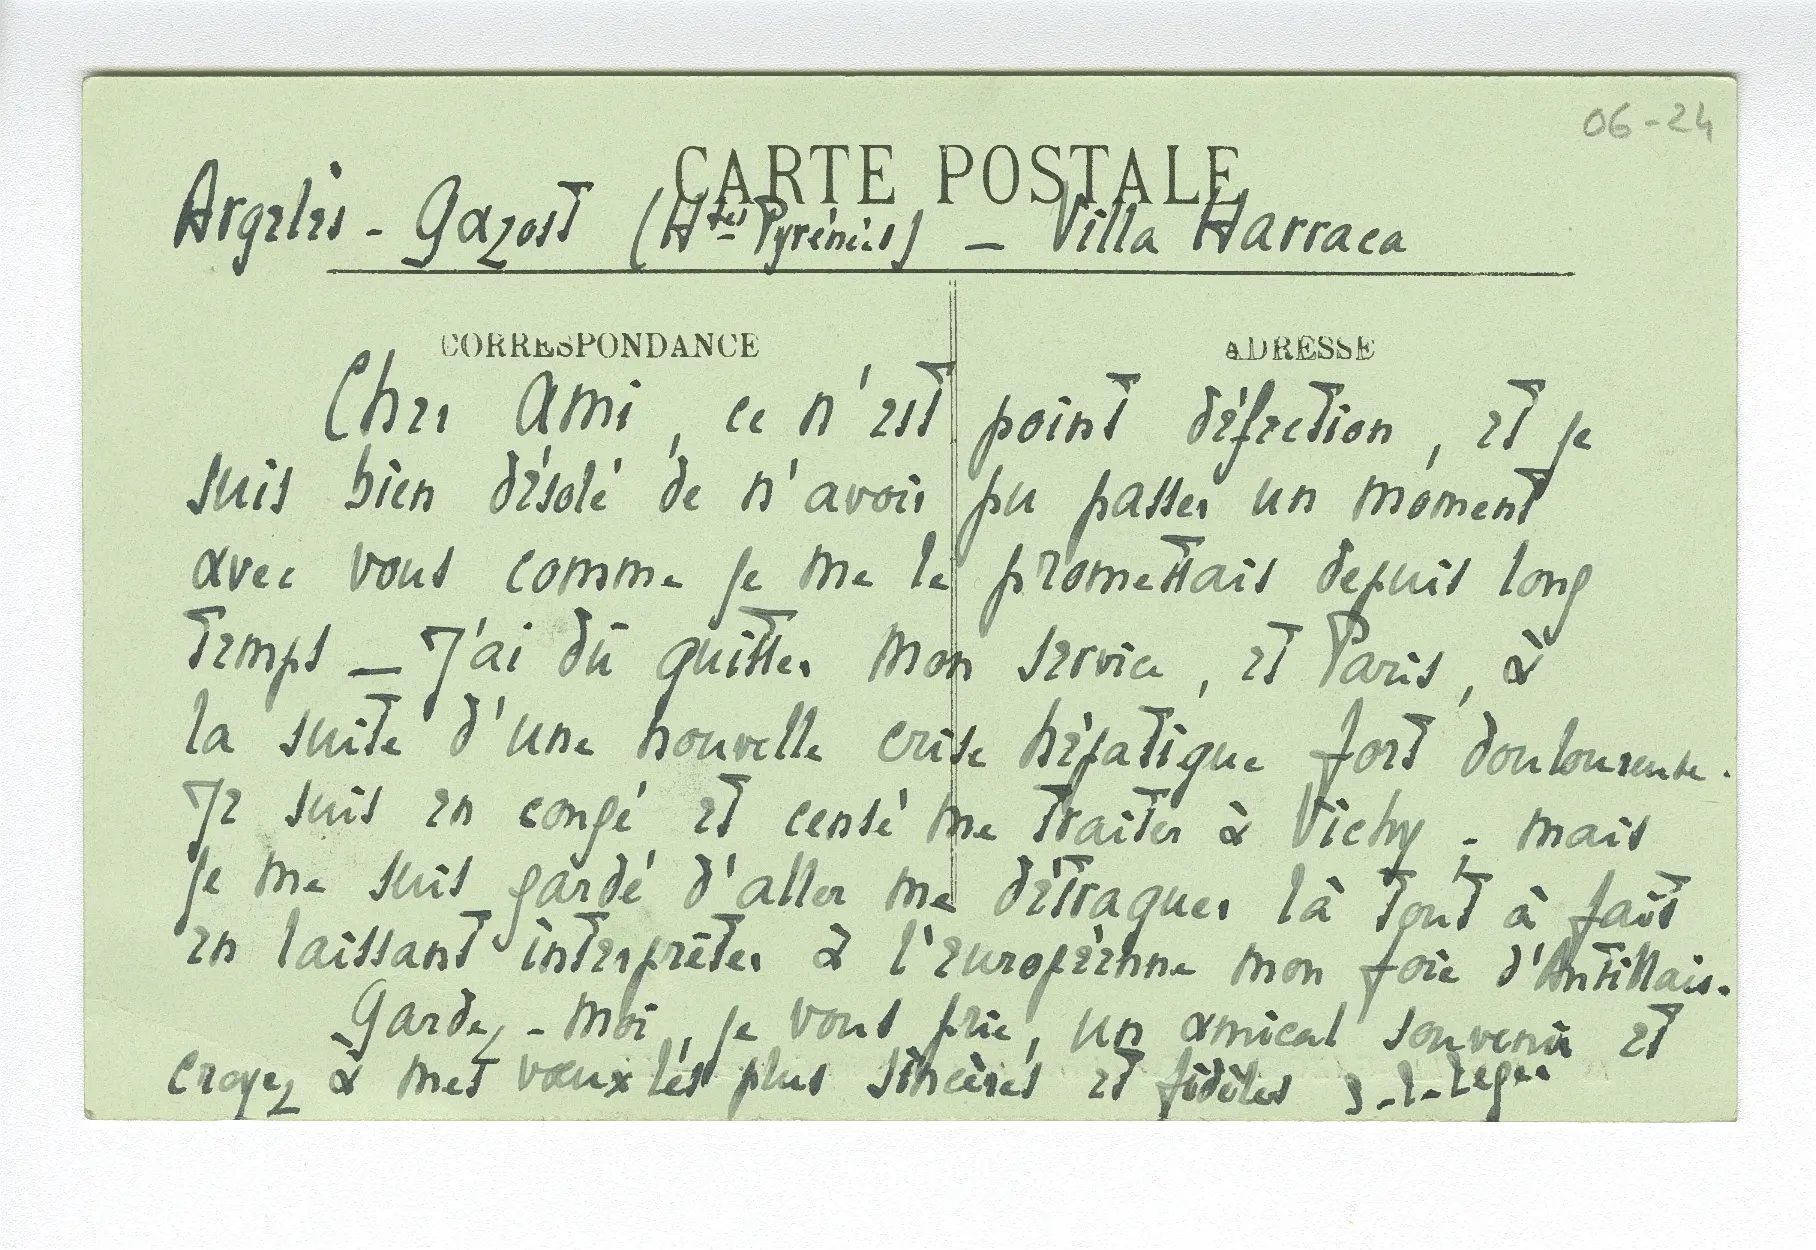 06-24
CARTE POSTALE
Argelès - Gazost (Htes Pyrénées) — Villa Harraca
CORRESPONDANCE
ADRESSE
Cher Ami, ce n'est point défection, et je
suis bien désolé de n'avoir pu passer un moment
avec vous comme je me le promettais depuis long
temps — J'ai dû quitter mon service, et Paris, à
la suite d'une nouvelle crise hépatique fort douloureuse.
Je suis en congé et censé me traiter à Vichy ; mais
je me suis gardé d'aller me détraquer là tout à fait
en laissant interprêter à l'européenne mon foie d'Antillais.
Gardez-moi, je vous prie, un amical souvenir et
croyez à mes vœux les plus sincères et fidèles
Leger